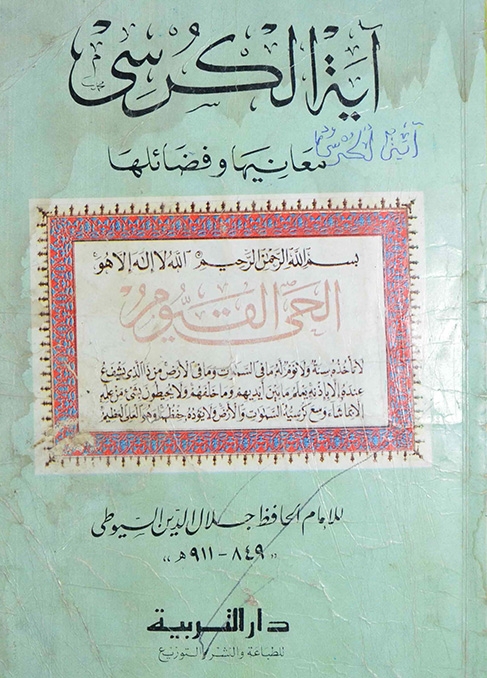 آية الكرسي
معانيها وفضائلها
آيۃ الکرسی
بسم الله الرحمن الرحيم الله لا إله إلا هو
الحي القيوم
لا تأخذه سنة ولا نوم له ما في السموات وما في الأرض من ذا الذي يشفع
عنده إلا بإذنه يعلم ما بين أيديهم وما خلفهم ولا يحيطون بشئ من علمه
إلا بما شاء وسع كرسيه السموات والأرض ولا يؤده حفظهما وهو العلي العظيم
للإمام الحافظ جلال الدين السيوطي
«٨٤٩ - ٩١١ هـ»
دار التربية
للطباعة والنشر والتوزيع